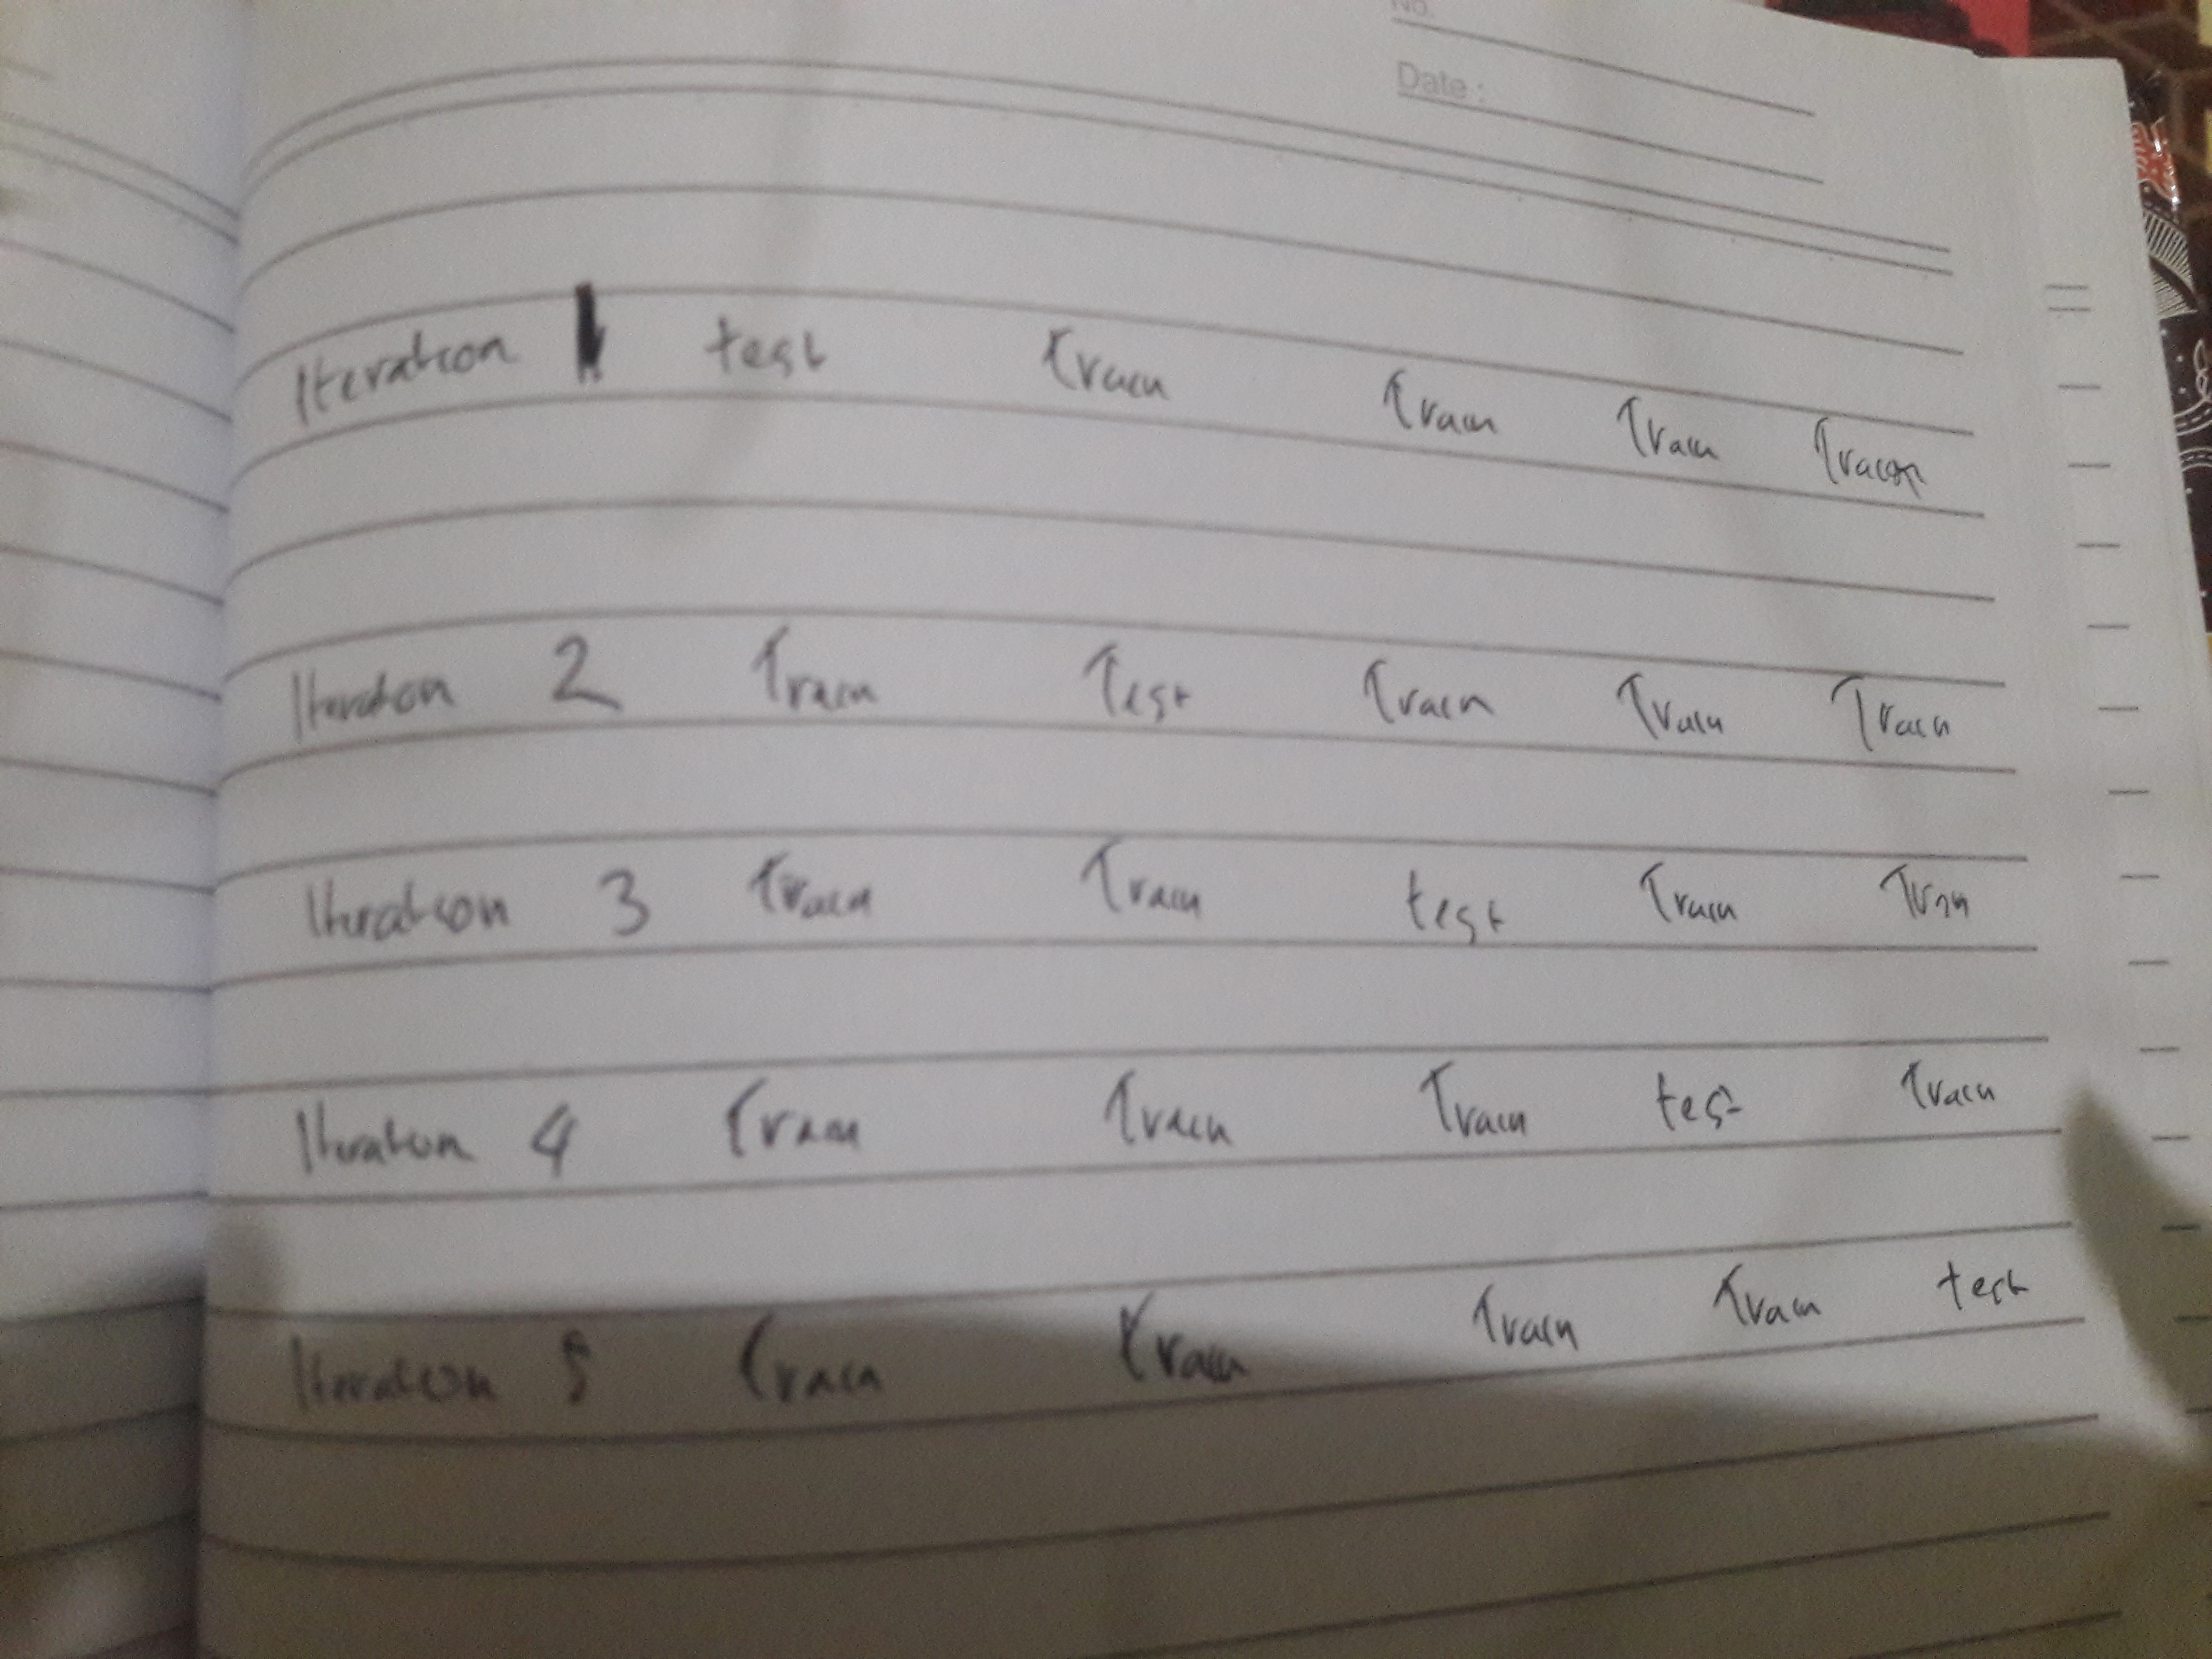 No.
Date :
Iteration 1 test Train Train Train Train
Iteration 2 Train Test Train Train Train
Iteration 3 Train Train test Train Tran
Iteration 4 Train Train Train test Train
Iteration 5 Train Train Train Train test